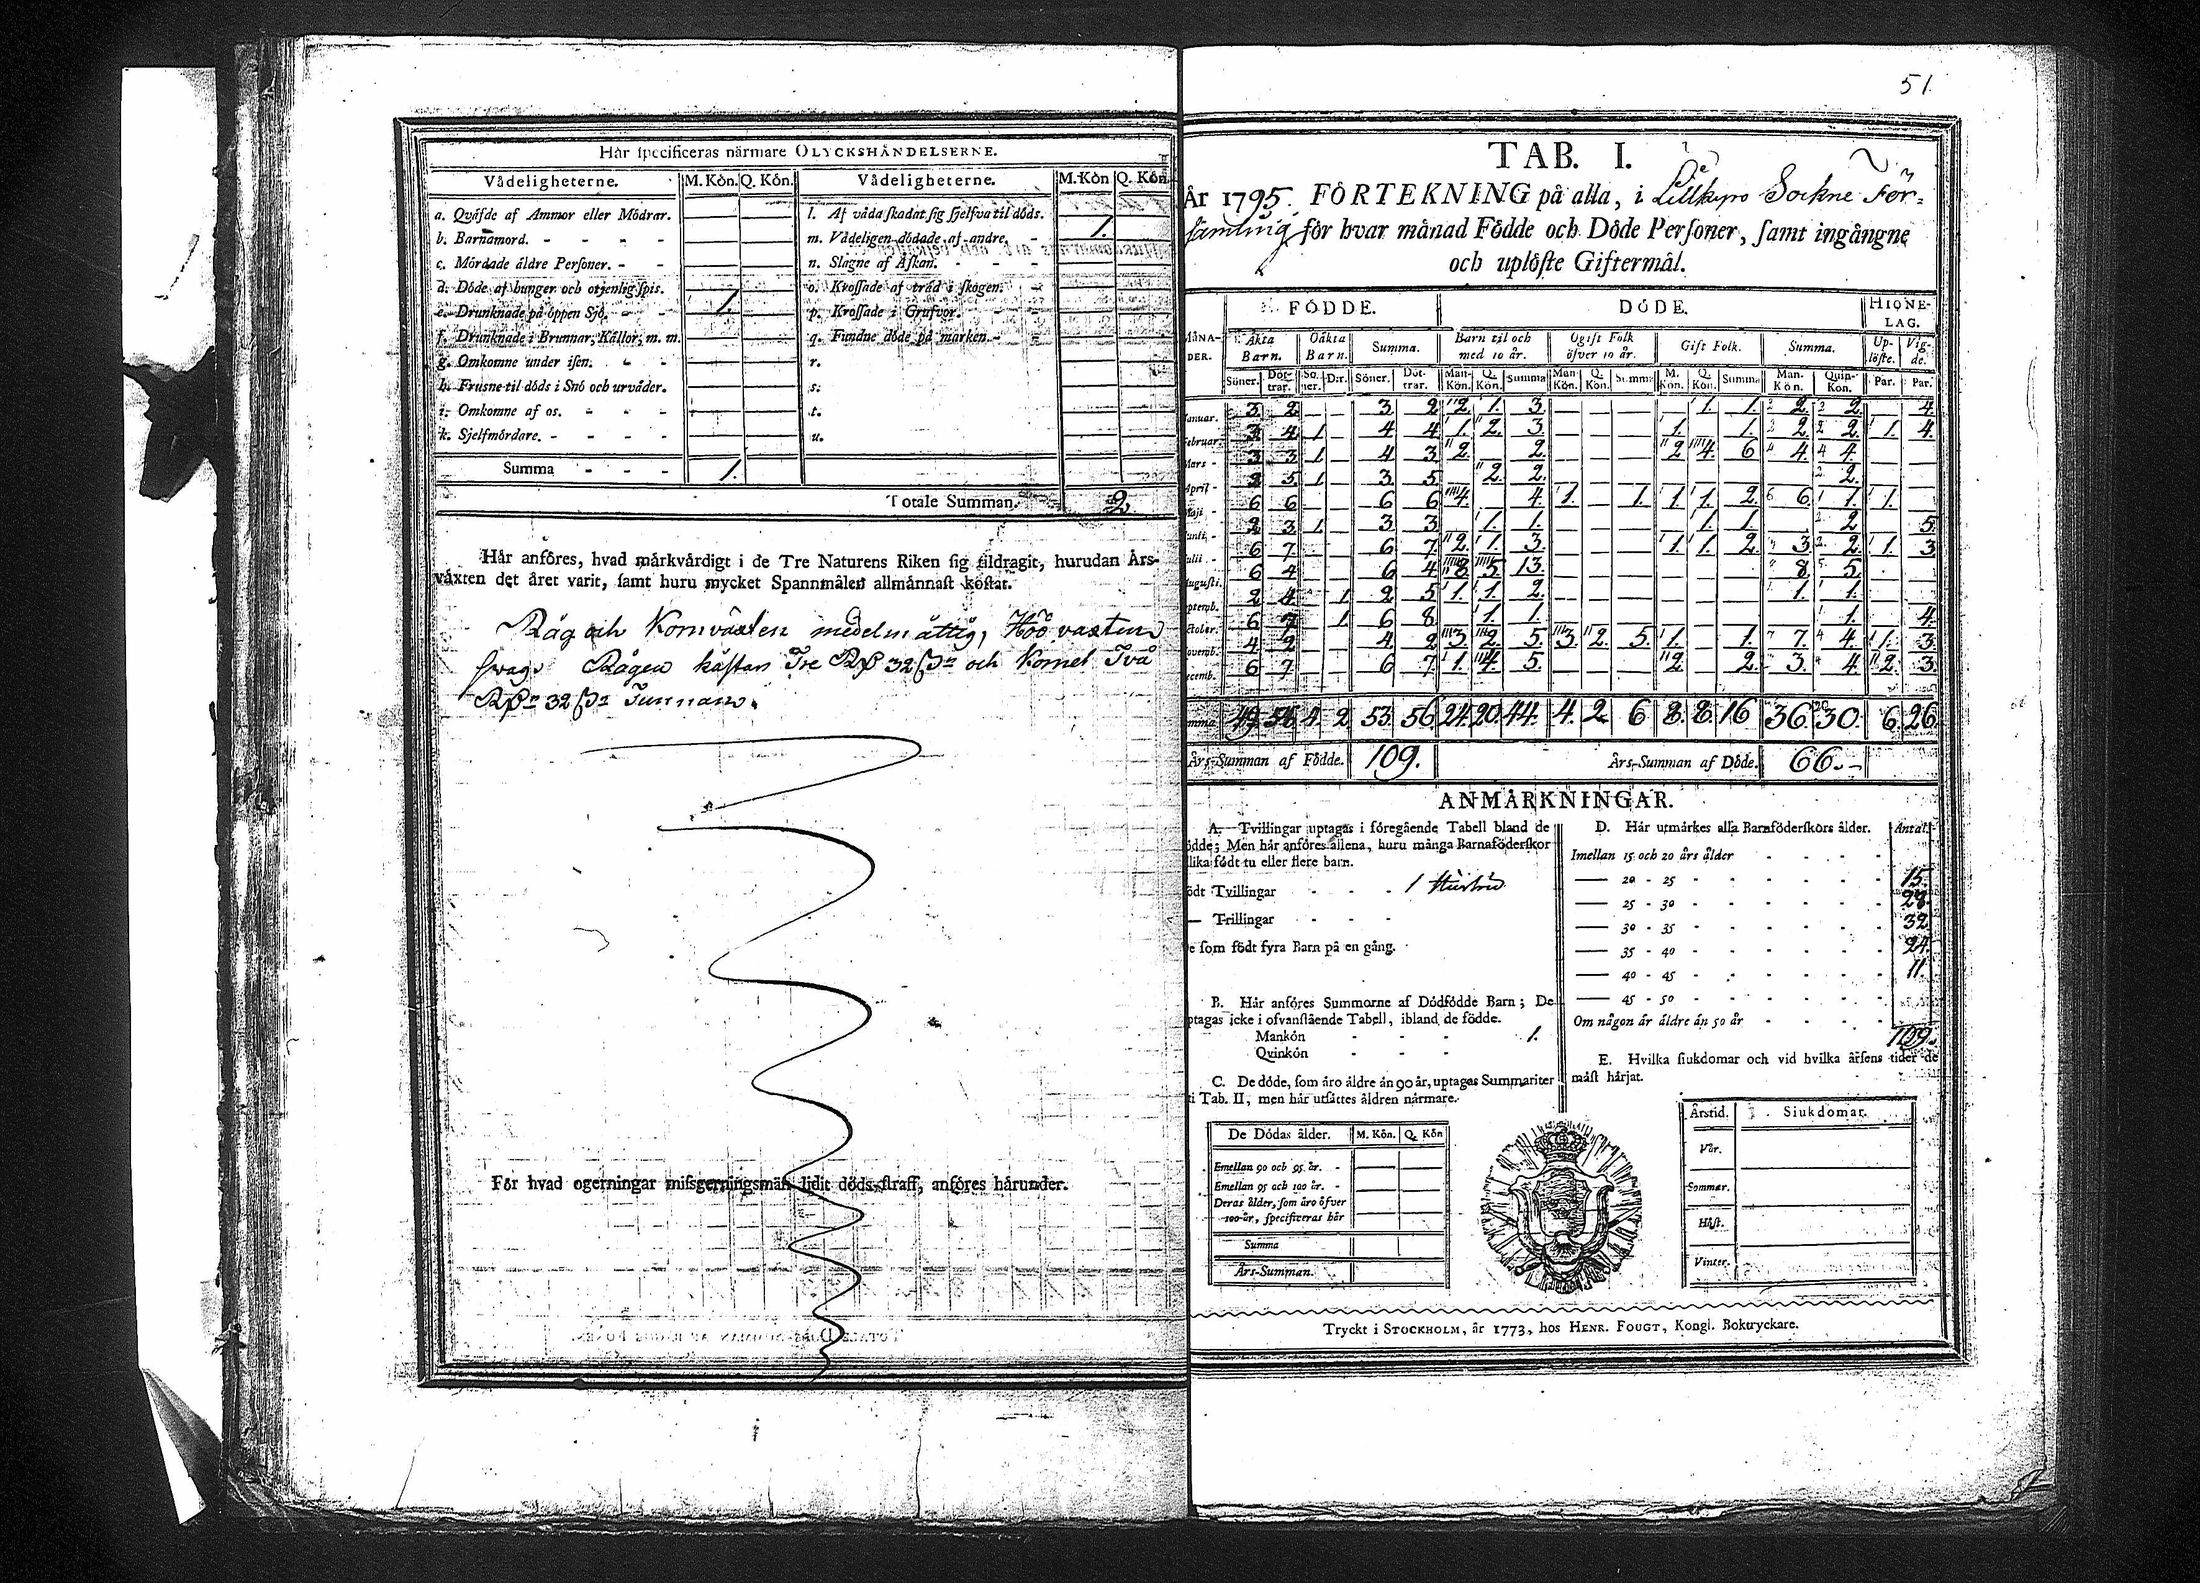 Hår specificeras närmare OLYCKSHÄNDELSERNE.
Vådeligheterne. M. Kön. Q. Kön. Vådeligheterne. M. Kön Q. Kön.
a. Qväfde af Ammor eller Mödrar. l. Af våda skadat sig sjelfva til döds.
b. Barnamord. m. Vådeligen dödade af andre. 1.
c. Mördade äldre Personer. n. Slagne af Åskan.
d. Döde af hunger och otjenlig spis. o. Krossade af träd i skogen.
e. Drunknade på öppen Sjö. 1. p. Krossade i Grufvor.
f. Drunknade i Brunnar, Källor, m. m. q. Fundne döde på marken.
g. Omkomne under isen. r.
h. Frusne til döds i Snö och urväder. s.
i. Omkomne af os. t.
k. Sjelfmördare. u.
Summa 1.
Totale Summan. 2
Hår anföres, hvad märkvärdigt i de Tre Naturens Riken sig tildragit, hurudan Års-
växten det året varit, samt huru mycket Spannmålen allmännast kostat.
Råg och Kornväxten medelmåttig, Höö vaxten
svag. Rågen kåstan Tre 32 och Kornet Två
32 Tunnan.
För hvad ogerningar missgerningsmän lidit döds-straff, anföres härunder.
51.
TAB. I.
År 1795. FÖRTEKNING på alla, i Lillkyro Sockne För-
samling för hvar månad Födde och Döde Personer, samt ingångne
och uplöste Giftermål.
FÖDDE. DÖDE. HIONE-
LAG.
Äkta Barn. Oäkta Barn. Summa. Barn til och med 10 år. Ogift Folk öfver 10 år. Gift Folk. Summa. Up-löste. Vig-de.
Söner. Döt-trar. So-ner. D:r. Söner. Döt-trar. Man-Kön. Q. Kön. Summa Man-Kön. Q. Kön. Summa M. Kön. Q. Kön. Summa Man-Kön. Quin-Kön. Par. Par.
anuar. 3 2 3 2 2 1. 3. 1. 1. 2. 2. 4.
ebruar. 3 4 1 4 4 1. 2. 3. 1. 1. 2. 2. 1. 4.
Mars 3 3 1 4 3 2. 2. 2 4. 6 4. 4.
April 3 5 1 3 5 2. 2. 2.
Maji 6 6 6 6 4. 4. 1. 1. 1. 1. 2. 6. 1. 1.
Junii 2 3 1. 3 3 1. 1. 1. 1. 2 5
ulii 6 7 6 7 2. 1. 3. 1. 1. 2. 3. 2. 1. 3
ugusti. 6 4 6 4 8. 5. 13. 8. 5.
ptemb. 2 4 1 2 5 1. 1. 2. 1. 1.
ctober. 6 7 1 6 8 1. 1. 1. 4.
ovemb. 4 2 4. 2 3. 2. 5 3. 2. 5. 1. 1. 7. 4. 1. 3
ecemb. 6 7 6 7 1. 4. 5. 2. 2. 3. 4. 2. 3.
mma 49 54 4. 2 53. 56 24. 20. 44. 4. 2. 6 8. 8. 16 36. 30. 6. 26
Års-Summan af Födde. 109. Års-Summan af Döde. 66.
ANMÄRKNINGAR.
A. Tvillingar uptagas i föregående Tabell bland de
ödde; Men här anföres allena, huru många Barnaföderskor
lika födt tu eller flere barn.
ödt Tvillingar 1 Hustru
— Trillingar
e som födt fyra Barn på en gång.
B. Här anföres Summorne af Dödfödde Barn; De
ptagas icke i ofvanstående Tabell, ibland de födde.
Mankön 1.
Qvinkön
C. De döde, som äro äldre än 90 år, uptages Summariter
i Tab. II, men här utsättes åldren närmare.
De Dödas ålder. M. Kön. Q. Kön
Emellan 90 och 95 år.
Emellan 95 och 100 år.
Deras ålder, som äro öfver
100 år, specificeras här
Summa
Års-Summan.
D. Här utmärkes alla Barnföderskors ålder. Antal.
Imellan 15 och 20 års ålder
20 - 25 15.
25 - 30 27.
30 - 35 32
35 - 40 24.
40 - 45 11.
45 - 50
Om någon är äldre än 50 år
109.
E. Hvilka siukdomar och vid hvilka årsens tider de
mäst härjat.
Årstid. Siukdomar.
Vår.
Sommar.
Höst.
Vinter.
Tryckt i STOCKHOLM, år 1773, hos HENR. FOUGT, Kongl. Boktryckare.